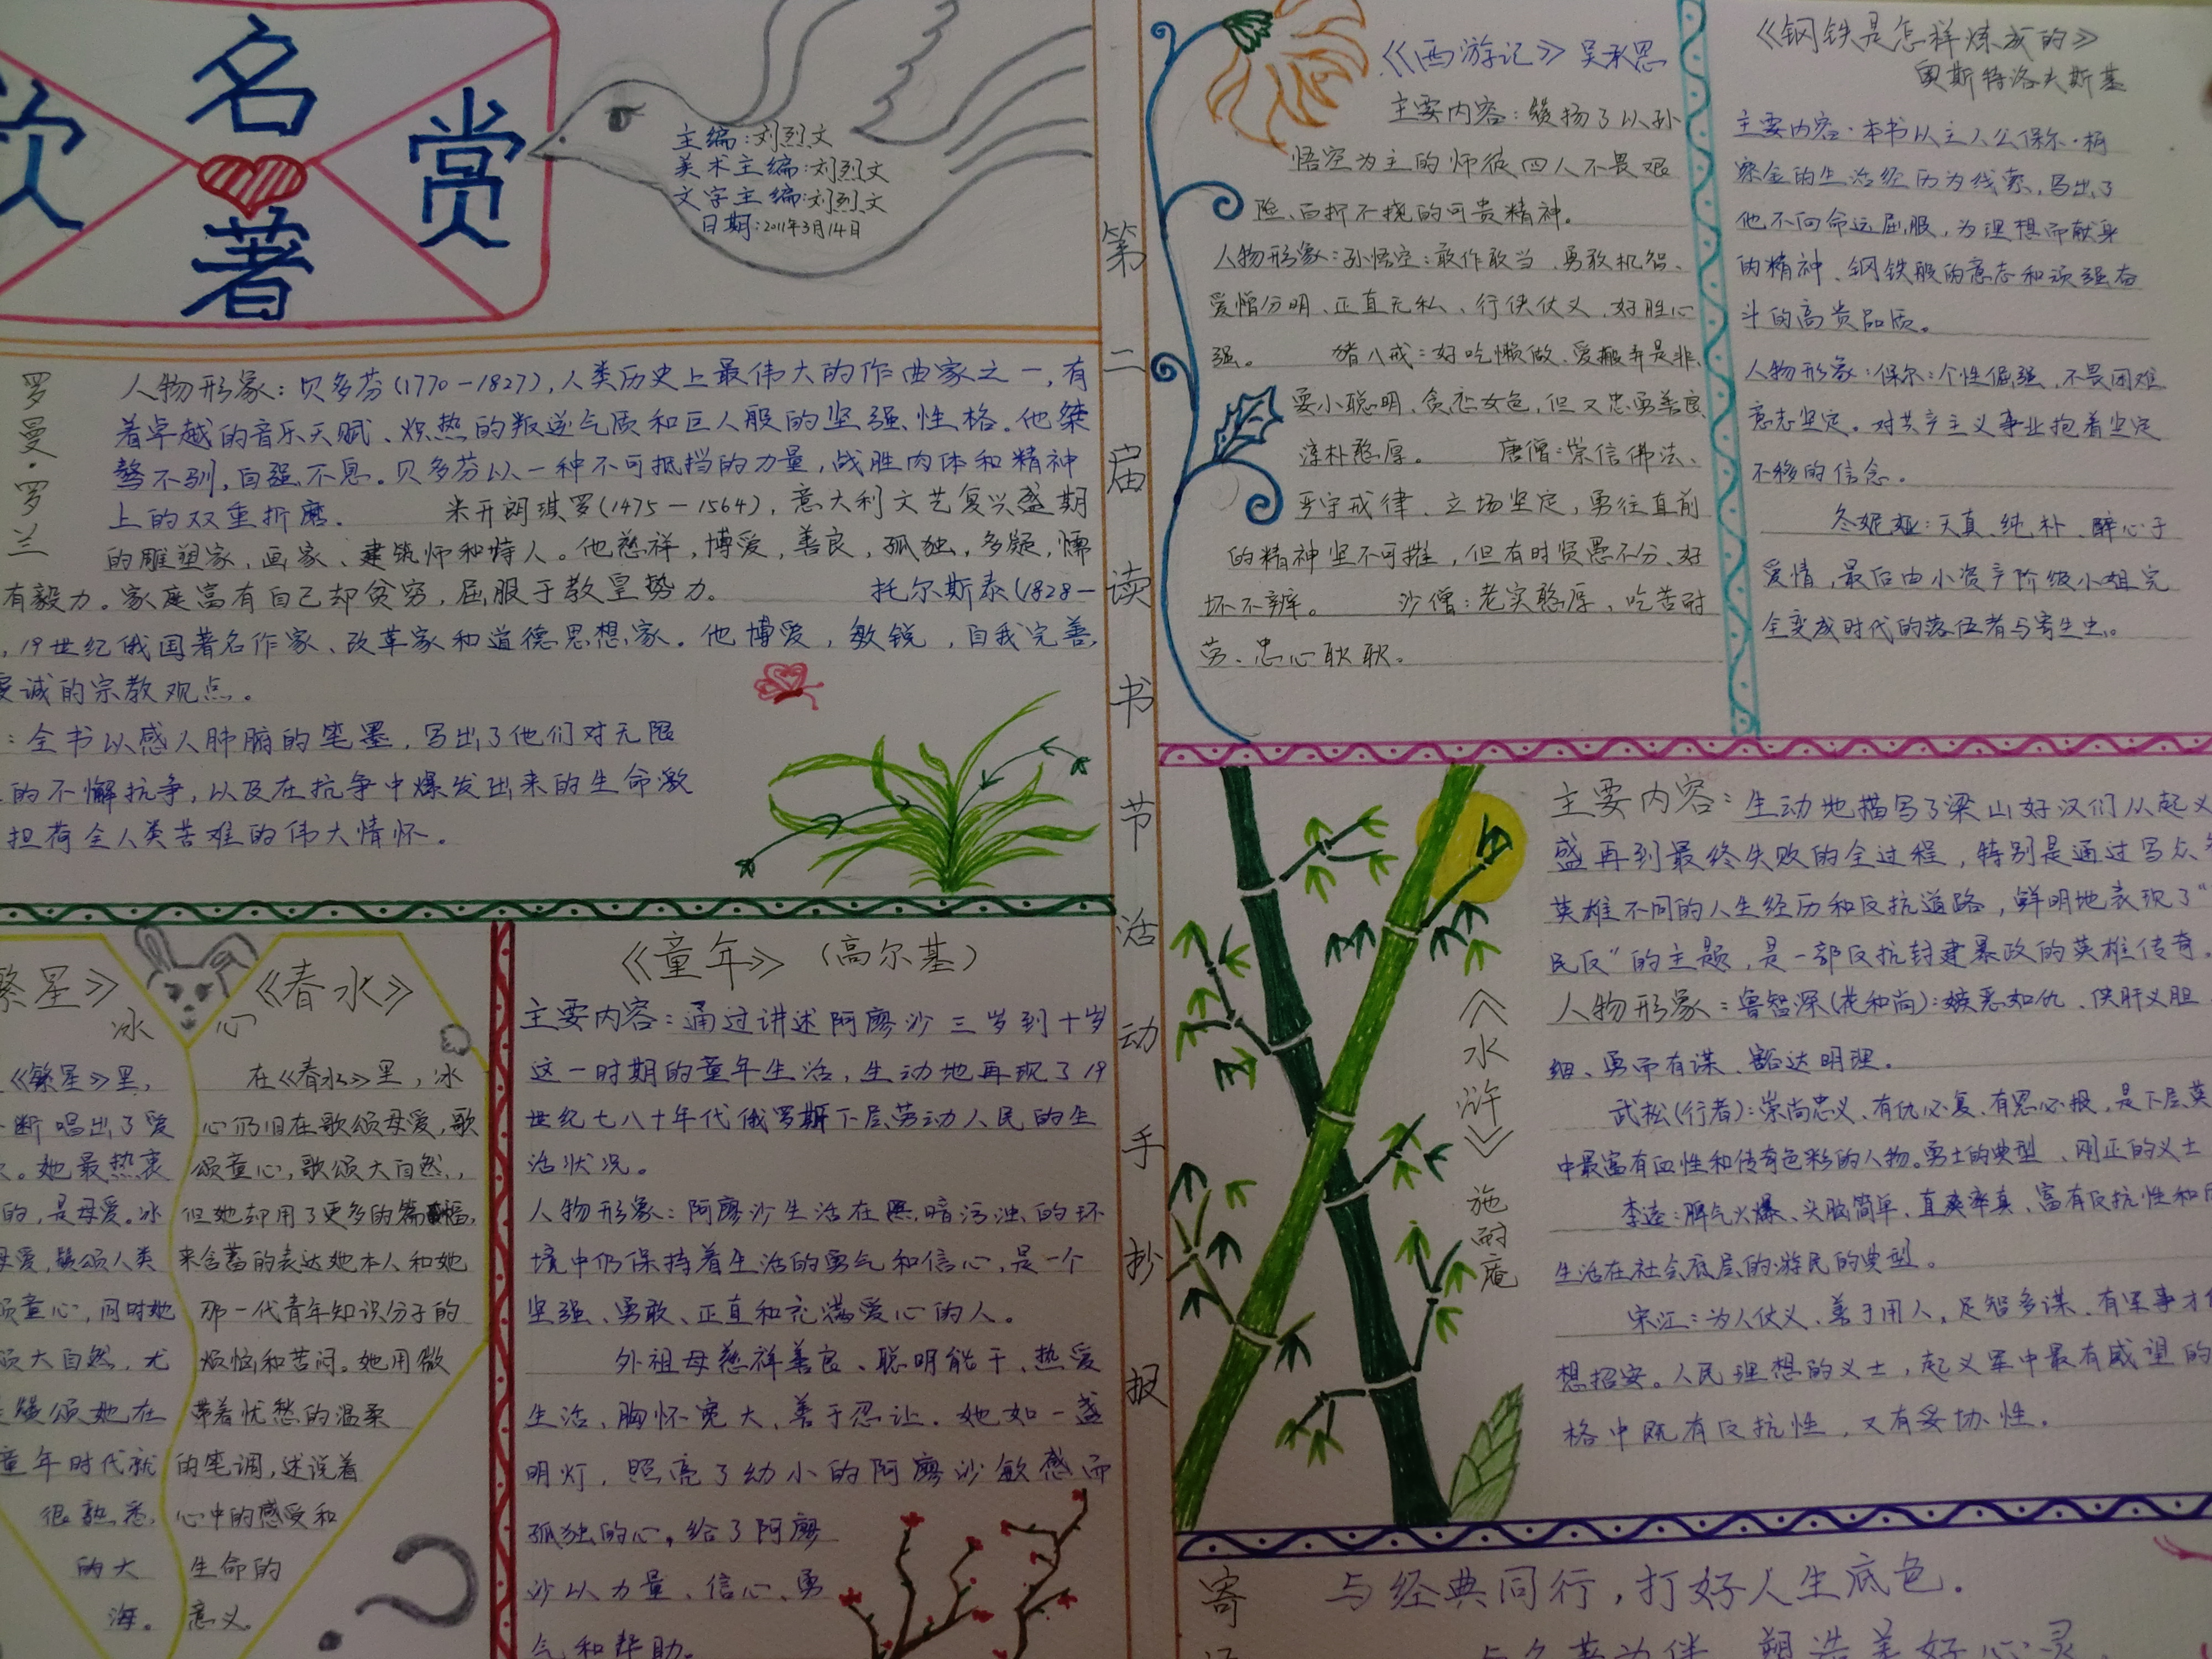 名著
欣赏
主编:刘烈文
美术主编:刘烈文
文字主编:刘烈文
日期:2011年3月14日
罗曼·罗兰
人物形象:贝多芬(1770-1827),人类历史上最伟大的作曲家之一,有
着卓越的音乐天赋、炽热的叛逆气质和巨人般的坚强性格。他桀
骜不驯,自强不息。贝多芬以一种不可抵挡的力量,战胜肉体和精神
上的双重折磨。 米开朗琪罗(1475-1564),意大利文艺复兴盛期
的雕塑家,画家、建筑师和诗人。他慈祥,博爱,善良,孤独,多疑,懦
有毅力。家庭富有自己却贫穷,屈服于教皇势力。 托尔斯泰(1828-
,19世纪俄国著名作家、改革家和道德思想家。他博爱,敏锐,自我完善,
诚的宗教观点。
:全书以感人肺腑的笔墨,写出了他们对无限
的不懈抗争,以及在抗争中爆发出来的生命激
担荷全人类苦难的伟大情怀。
繁星》
《春水》
冰心
《繁星》里,
断唱出了爱
。她最热衷
的,是母爱。冰
母爱,颂人类
颂童心,同时她
颂大自然,尤
颂她在
童年时代就
很熟悉,
的大
海。
在《春水》里,冰
心仍旧在歌颂母爱,歌
颂童心,歌颂大自然,
但她却用了更多的篇幅,
来含蓄的表达她本人和她
那一代青年知识分子的
烦恼和苦闷。她用微
带着忧愁的温柔
的笔调,述说着
心中的感受和
生命的
意义。
《童年》(高尔基)
主要内容:通过讲述阿廖沙三岁到十岁
这一时期的童年生活,生动地再现了19
世纪七八十年代俄罗斯下层劳动人民的生
活状况。
人物形象:阿廖沙生活在黑暗污浊的环
境中仍保持着生活的勇气和信心,是一个
坚强、勇敢、正直和充满爱心的人。
外祖母慈祥善良、聪明能干、热爱
生活,胸怀宽大,善于忍让。她如一盏
明灯,照亮了幼小的阿廖沙敏感而
孤独的心。给了阿廖
沙以力量、信心、勇
气和帮助。
第二届读书节活动手抄报
《西游记》吴承恩
主要内容:颂扬了以孙
悟空为主的师徒四人不畏艰
险、百折不挠的可贵精神。
人物形象:孙悟空:敢作敢当、勇敢机智、
爱憎分明、正直无私、行侠仗义、好胜心
强。 猪八戒:好吃懒做、爱搬弄是非、
耍小聪明、贪恋女色,但又忠勇善良、
淳朴憨厚。 唐僧:崇信佛法、
严守戒律、立场坚定,勇往直前
的精神坚不可摧,但有时贤愚不分、好
坏不辨。 沙僧:老实憨厚、吃苦耐
劳、忠心耿耿。
《钢铁是怎样炼成的》
奥斯特洛夫斯基
主要内容:本书以主人公保尔·柯
察金的生活经历为线索,写出了
他不向命运屈服,为理想而献身
的精神、钢铁般的意志和顽强奋
斗的高贵品质。
人物形象:保尔:个性倔强、不畏困难
意志坚定。对共产主义事业抱着坚定
不移的信念。
冬妮娅:天真、纯朴、醉心于
爱情,最后由小资产阶级小姐完
全变成时代的落伍者与寄生虫。
《水浒》施耐庵
主要内容:生动地描写了梁山好汉们从起义
盛再到最终失败的全过程,特别是通过写众
英雄不同的人生经历和反抗道路,鲜明地表现了“
民反”的主题,是一部反抗封建暴政的英雄传奇。
人物形象:鲁智深(花和尚):嫉恶如仇、侠肝义胆
细、勇而有谋、豁达明理。
武松(行者):崇尚忠义、有仇必复、有恩必报,是下层英
中最富有血性和传奇色彩的人物。勇士的典型、刚正的义士
李逵:脾气火爆、头脑简单、直爽率真、富有反抗性和
生活在社会底层的游民的典型。
宋江:为人仗义、善于用人,足智多谋、有军事才
想招安。人民理想的义士,起义军中最有威望的
格中既有反抗性,又有妥协性。
寄
与经典同行,打好人生底色.
与名著为伴,塑造美好心灵.